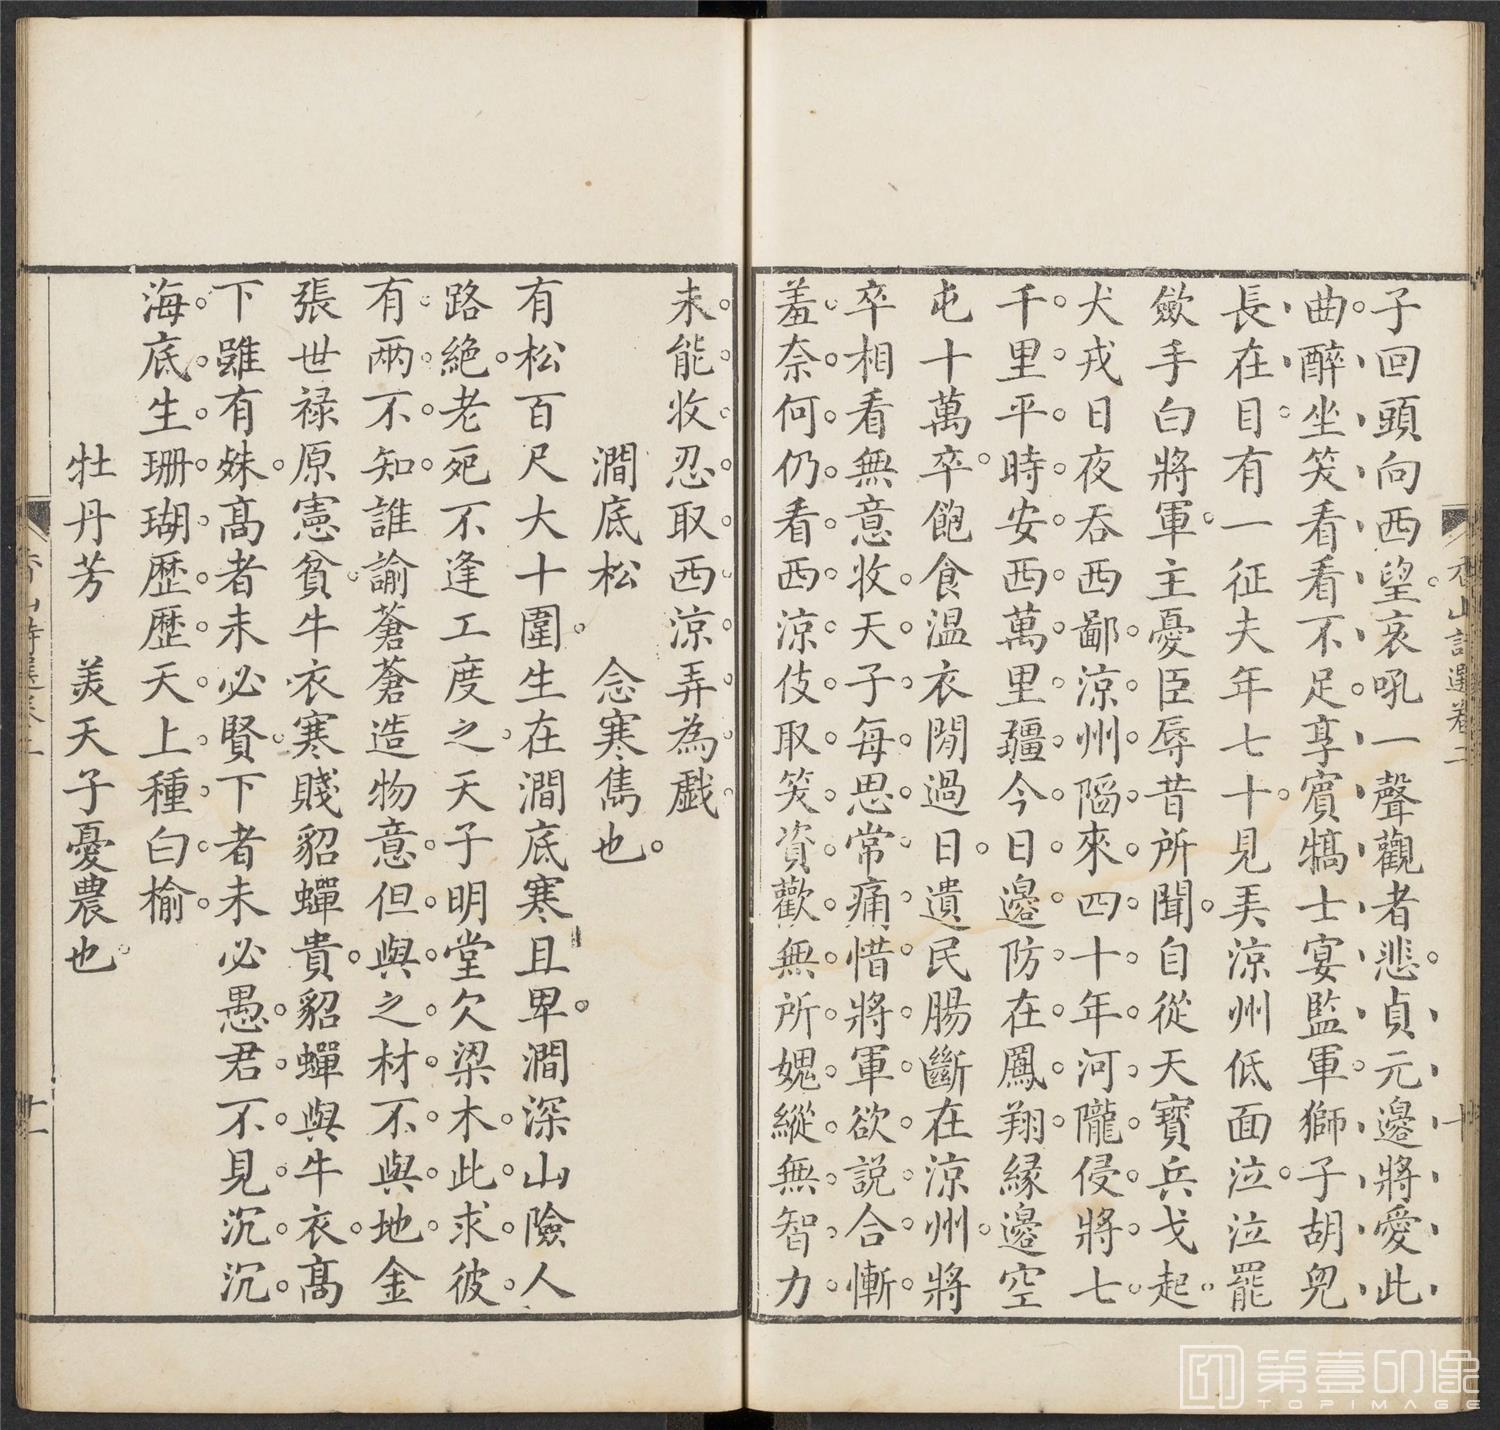 子回頭向西望哀吼一聲觀者悲貞元邊將愛此
曲醉坐笑看看不足享賓犒士宴監軍獅子胡兒
長在目有一征夫年七十見弄涼州低面泣泣罷
歛手白將軍主憂臣辱昔所聞自從天寶兵戈起
犬戎日夜吞西鄙涼州陷來四十年河隴侵將七
千里平時安西萬里疆今日邊防在鳳翔緣邊空
屯十萬卒飽食温衣閒過日遺民腸斷在涼州將
卒相看無意收天子每思常痛惜將軍欲説合慚
羞奈何仍看西涼伎取笑資歡無所媿縱無智力
未能收忍取西涼弄為戲
澗底松 念寒雋也
有松百尺大十圍生在澗底寒且卑澗深山險人
路絶老死不逢工度之天子明堂欠梁木此求彼
有兩不知誰諭蒼蒼造物意但與之材不與地金
張世禄原憲貧牛衣寒賤貂蟬貴貂蟬與牛衣高
下雖有殊高者未必賢下者未必愚君不見沉沉
海底生珊瑚歷歷天上種白榆
牡丹芳 美天子憂農也
香山詩選卷二
十
香山詩選卷二
十一
第壹印像
TOPIMAGE